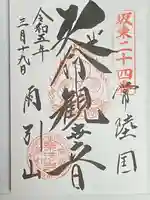 坂東二十四番
常陸国
延命観世音
令和五年
三月十九日
雨引山